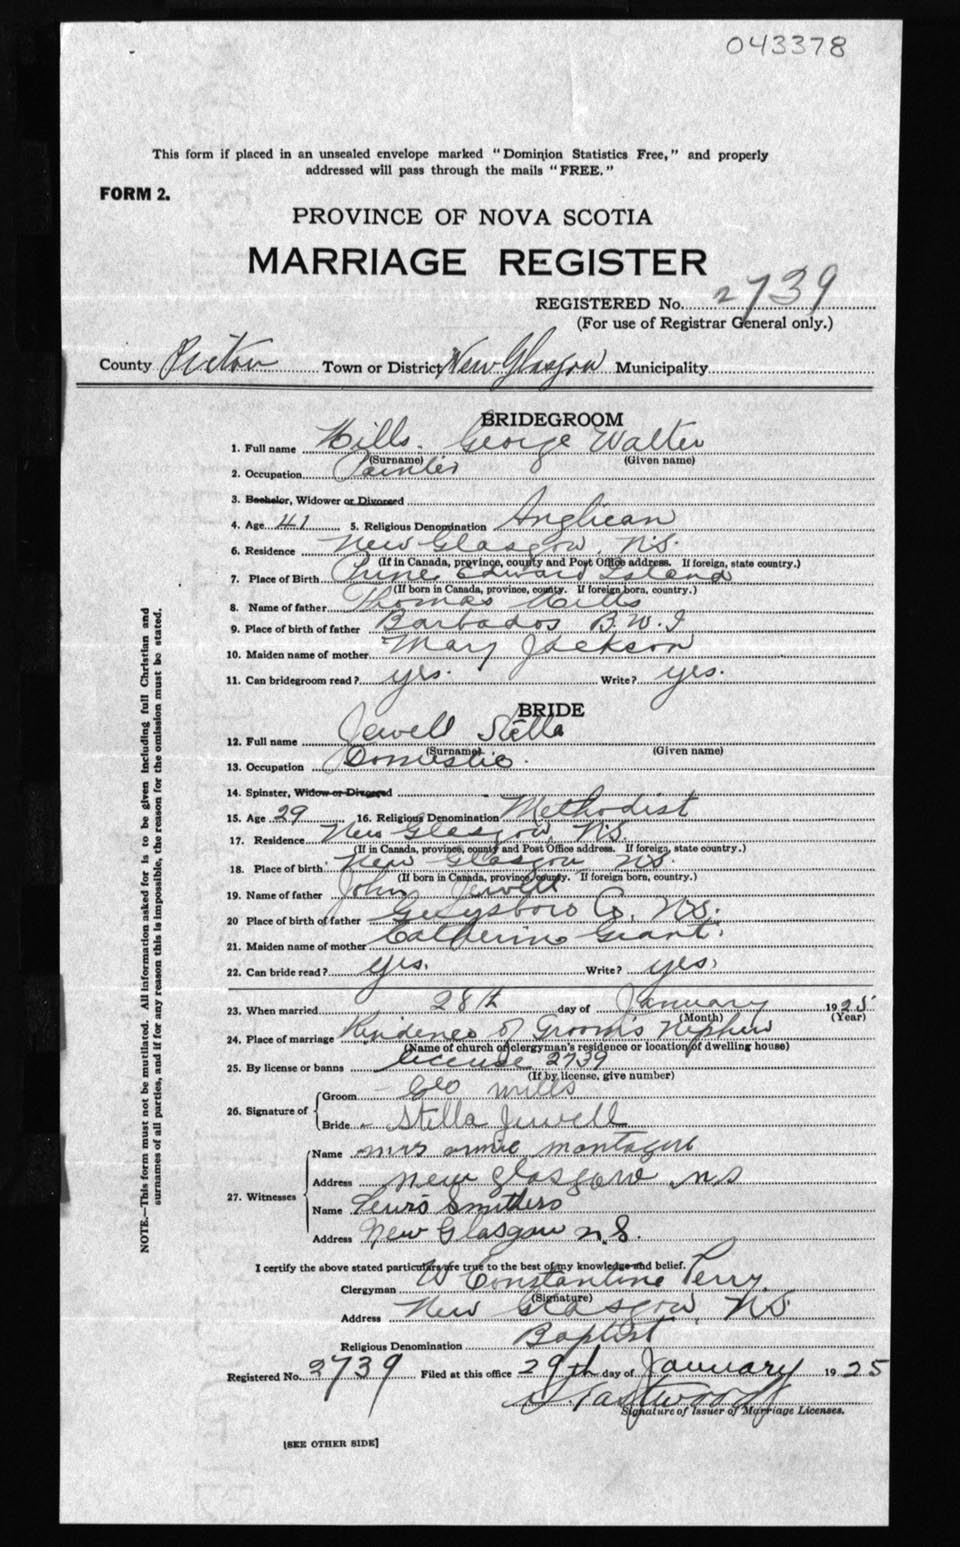 043378
This form if placed in an unsealed envelope marked "Dominion Statistics Free," and properly
addressed will pass through the mails "FREE."
FORM 2.
PROVINCE OF NOVA SCOTIA
MARRIAGE REGISTER
REGISTERED No. 2739
(For use of Registrar General only.)
County Pictou Town or District New Glasgow Municipality
BRIDEGROOM
1. Full name Mills. George Walter
(Surname) (Given name)
2. Occupation Painter
3. Bachelor, Widower or Divorced
4. Age 41 5. Religious Denomination Anglican
6. Residence New Glasgow, N.S.
(If in Canada, province, county and Post Office address. If foreign, state country.)
7. Place of Birth Prince Edward Island
(If born in Canada, province, county. If foreign born, country.)
8. Name of father Thomas Mills
9. Place of birth of father Barbados B.W.I
10. Maiden name of mother Mary Jackson
11. Can bridegroom read? yes. Write? yes.
BRIDE
12. Full name Jewell Stella
(Surname) (Given name)
13. Occupation Domestic.
14. Spinster, Widow or Divorced
15. Age 29 16. Religious Denomination Methodist
17. Residence New Glasgow, N.S.
(If in Canada, province, county and Post Office address. If foreign, state country.)
18. Place of birth New Glasgow, N.S.
(If born in Canada, province, county. If foreign born, country.)
19. Name of father John Jewell
20 Place of birth of father Guysboro Co. N.S.
21. Maiden name of mother Catherine Grant.
22. Can bride read? yes, Write? yes,
23. When married 28th day of January 1925
(Month) (Year)
24. Place of marriage Residence of Groom's Nephew
(Name of church or clergyman's residence or location of dwelling house)
25. By license or banns License 2739
(If by license, give number)
26. Signature of
Groom Geo Mills
Bride Stella Jewell
27. Witnesses
Name mrs montague
Address new glasgow ns
Name Lewis Smithers
Address New Glasgow n.S.
I certify the above stated particulars are true to the best of my knowledge and belief.
Clergyman W Constantine Perry
(Signature)
Address New Glasgow, N.S.
Religious Denomination Baptist
Registered No. 2739 Filed at this office 29th day of January 1925
Eastwood
Signature of Issuer of Marriage Licenses.
[SEE OTHER SIDE]
NOTE.—This form must not be mutilated. All information asked for is to be given including full Christian and
surnames of all parties, and if for any reason this is impossible, the reason for the omission must be stated.